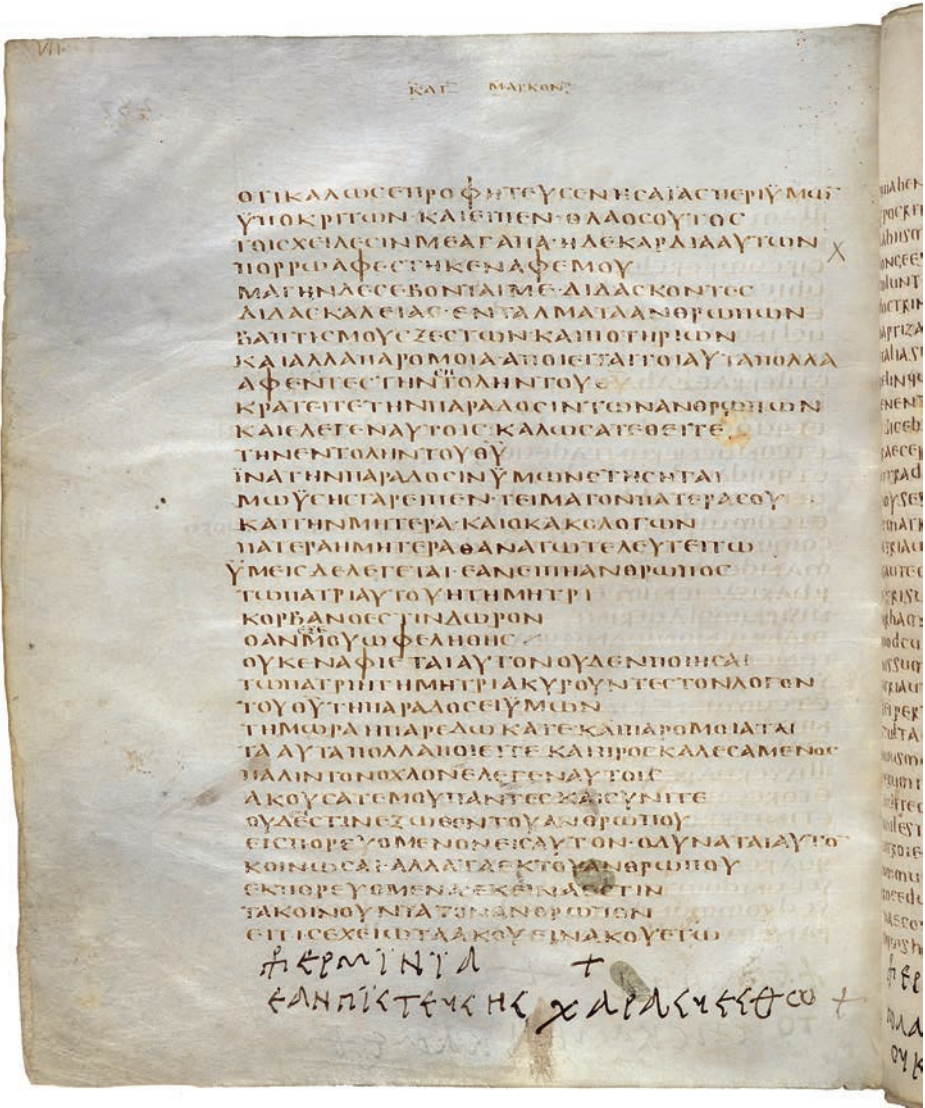 VII
ΚΑΤ ΜΑΡΚΟΝ
ΟΤΙΚΑΛΩϹΕΠΡΟΦΗΤΕΥϹΕΝΗϹΑΙΑϹΠΕΡΙΫΜΩ̅
ΫΠΟΚΡΙΤΩΝ·ΚΑΙΕΙΠΕΝ·ΟΛΑΟϹΟΥΤΟϹ
ΤΟΙϹΧΕΙΛΕϹΙΝΜΕΑΓΑΠΑ·ΗΔΕΚΑΡΔΙΑΑΥΤΩΝ
ΠΟΡΡΩΑΦΕϹΤΗΚΕΝΑΦΕΜΟΥ
ΜΑΤΗΝΔΕϹΕΒΟΝΤΑΙΜΕ·ΔΙΔΑϹΚΟΝΤΕϹ
ΔΙΔΑϹΚΑΛΕΙΑϹ·ΕΝΤΑΛΜΑΤΑΑΝΘΡΩΠΩΝ
ΒΑΠΤΙϹΜΟΥϹΞΕϹΤΩΝ·ΚΑΙΠΟΤΗΡΙΩΝ
ΚΑΙΑΛΛΑΠΑΡΟΜΟΙΑ·ΑΠΟΙΕΙΤΑΙΤΟΙΑΥΤΑΠΟΛΛΑ
ΑΦΕΝΤΕϹΤΗΝΕΝΤΟΛΗΝΤΟΥ
ΚΡΑΤΕΙΤΕΤΗΝΠΑΡΑΔΟϹΙΝΤΩΝΑΝΘΡΩΠΩΝ
ΚΑΙΕΛΕΓΕΝΑΥΤΟΙϹ·ΚΑΛΩϹΑΤΕΘΕΙΤΕ
ΤΗΝΕΝΤΟΛΗΝΤΟΥΘΥ
ΪΝΑΤΗΝΠΑΡΑΔΟϹΙΝΫΜΩΝϹΤΗϹΗΤΑΙ
ΜΩΫϹΗϹΓΑΡΕΙΠΕΝ·ΤΕΙΜΑΤΟΝΠΑΤΕΡΑϹΟΥ
ΚΑΙΤΗΝΜΗΤΕΡΑ·ΚΑΙΟΚΑΚΟΛΟΓΩΝ
ΠΑΤΕΡΑΗΜΗΤΕΡΑΘΑΝΑΤΩΤΕΛΕΥΤΕΙΤΩ
ΫΜΕΙϹΔΕΛΕΓΕΤΑΙ·ΕΑΝΕΙΠΗΑΝΘΡΩΠΟϹ
ΤΩΠΑΤΡΙΑΥΤΟΥΗΤΗΜΗΤΡΙ
ΚΟΡΒΑΝΟΕϹΤΙΝΔΩΡΟΝ
ΟΑΝΕΞΕΜΟΥΩΦΕΛΗΘΗϹ
ΟΥΚΕΝΑΦΙΕΤΑΙΑΥΤΟΝΟΥΔΕΝΠΟΙΗϹΑΙ
ΤΩΠΑΤΡΙΗΤΗΜΗΤΡΙΑΚΥΡΟΥΝΤΕϹΤΟΝΛΟΓΟΝ
ΤΟΥΘΥΤΗΠΑΡΑΔΟϹΕΙΫΜΩΝ
ΤΗΜΩΡΑΗΠΑΡΕΔΩΚΑΤΕ·ΚΑΙΠΑΡΟΜΟΙΑΤΑΙ
ΤΑΑΥΤΑΠΟΛΛΑΠΟΙΕΙΤΕ·ΚΑΙΠΡΟϹΚΑΛΕϹΑΜΕΝΟϹ
ΠΑΛΙΝΤΟΝΟΧΛΟΝΕΛΕΓΕΝΑΥΤΟΙϹ
ΑΚΟΥϹΑΤΕΜΟΥΠΑΝΤΕϹΚΑΙϹΥΝΙΤΕ
ΟΥΔΕϹΤΙΝΕΞΩΘΕΝΤΟΥΑΝΘΡΩΠΟΥ
ΕΙϹΠΟΡΕΥΟΜΕΝΟΝΕΙϹΑΥΤΟΝ·ΟΔΥΝΑΤΑΙΑΥΤΟ̅
ΚΟΙΝΩϹΑΙ·ΑΛΛΑΤΑΕΚΤΟΥΑΝΘΡΩΠΟΥ
ΕΚΠΟΡΕΥΟΜΕΝΑ·ΕΚΕΙΝΑΕϹΤΙΝ
ΤΑΚΟΙΝΟΥΝΤΑΤΟΝΑΝΘΡΩΠΟΝ
ΕΙΤΙϹΕΧΕΙΩΤΑΑΚΟΥΕΙΝΑΚΟΥΕΤΩ
ΕΡΜΪΝΪΑ +
ΕΑΝΠΪϹΤΕΥϹΗϹ ΧΑΡΑϹΥΕϹΘΩ +